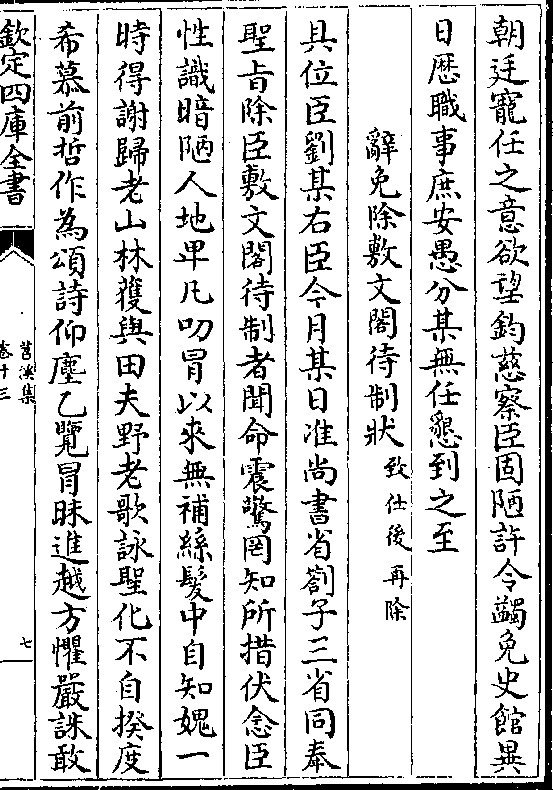 朝廷寵任之意欲望鈞慈察臣固陋許令蠲免史館異
日歴職事庶安愚分某無任懇到之至
辭免除敷文閣待制狀致仕後再除
具位臣劉某右臣今月某日准尚書省劄子三省同奉
聖㫖除臣敷文閣待制者聞命震驚罔知所措伏念臣
性識暗陋人地卑凡叨冒以來無補絲髮中自知媿一
時得謝歸老山林獲與田夫野老歌詠聖化不自揆度
希慕前哲作為頌詩仰塵乙覽冒昧進越方懼嚴誅敢
欽定四庫全書
苕溪集
卷十三
七